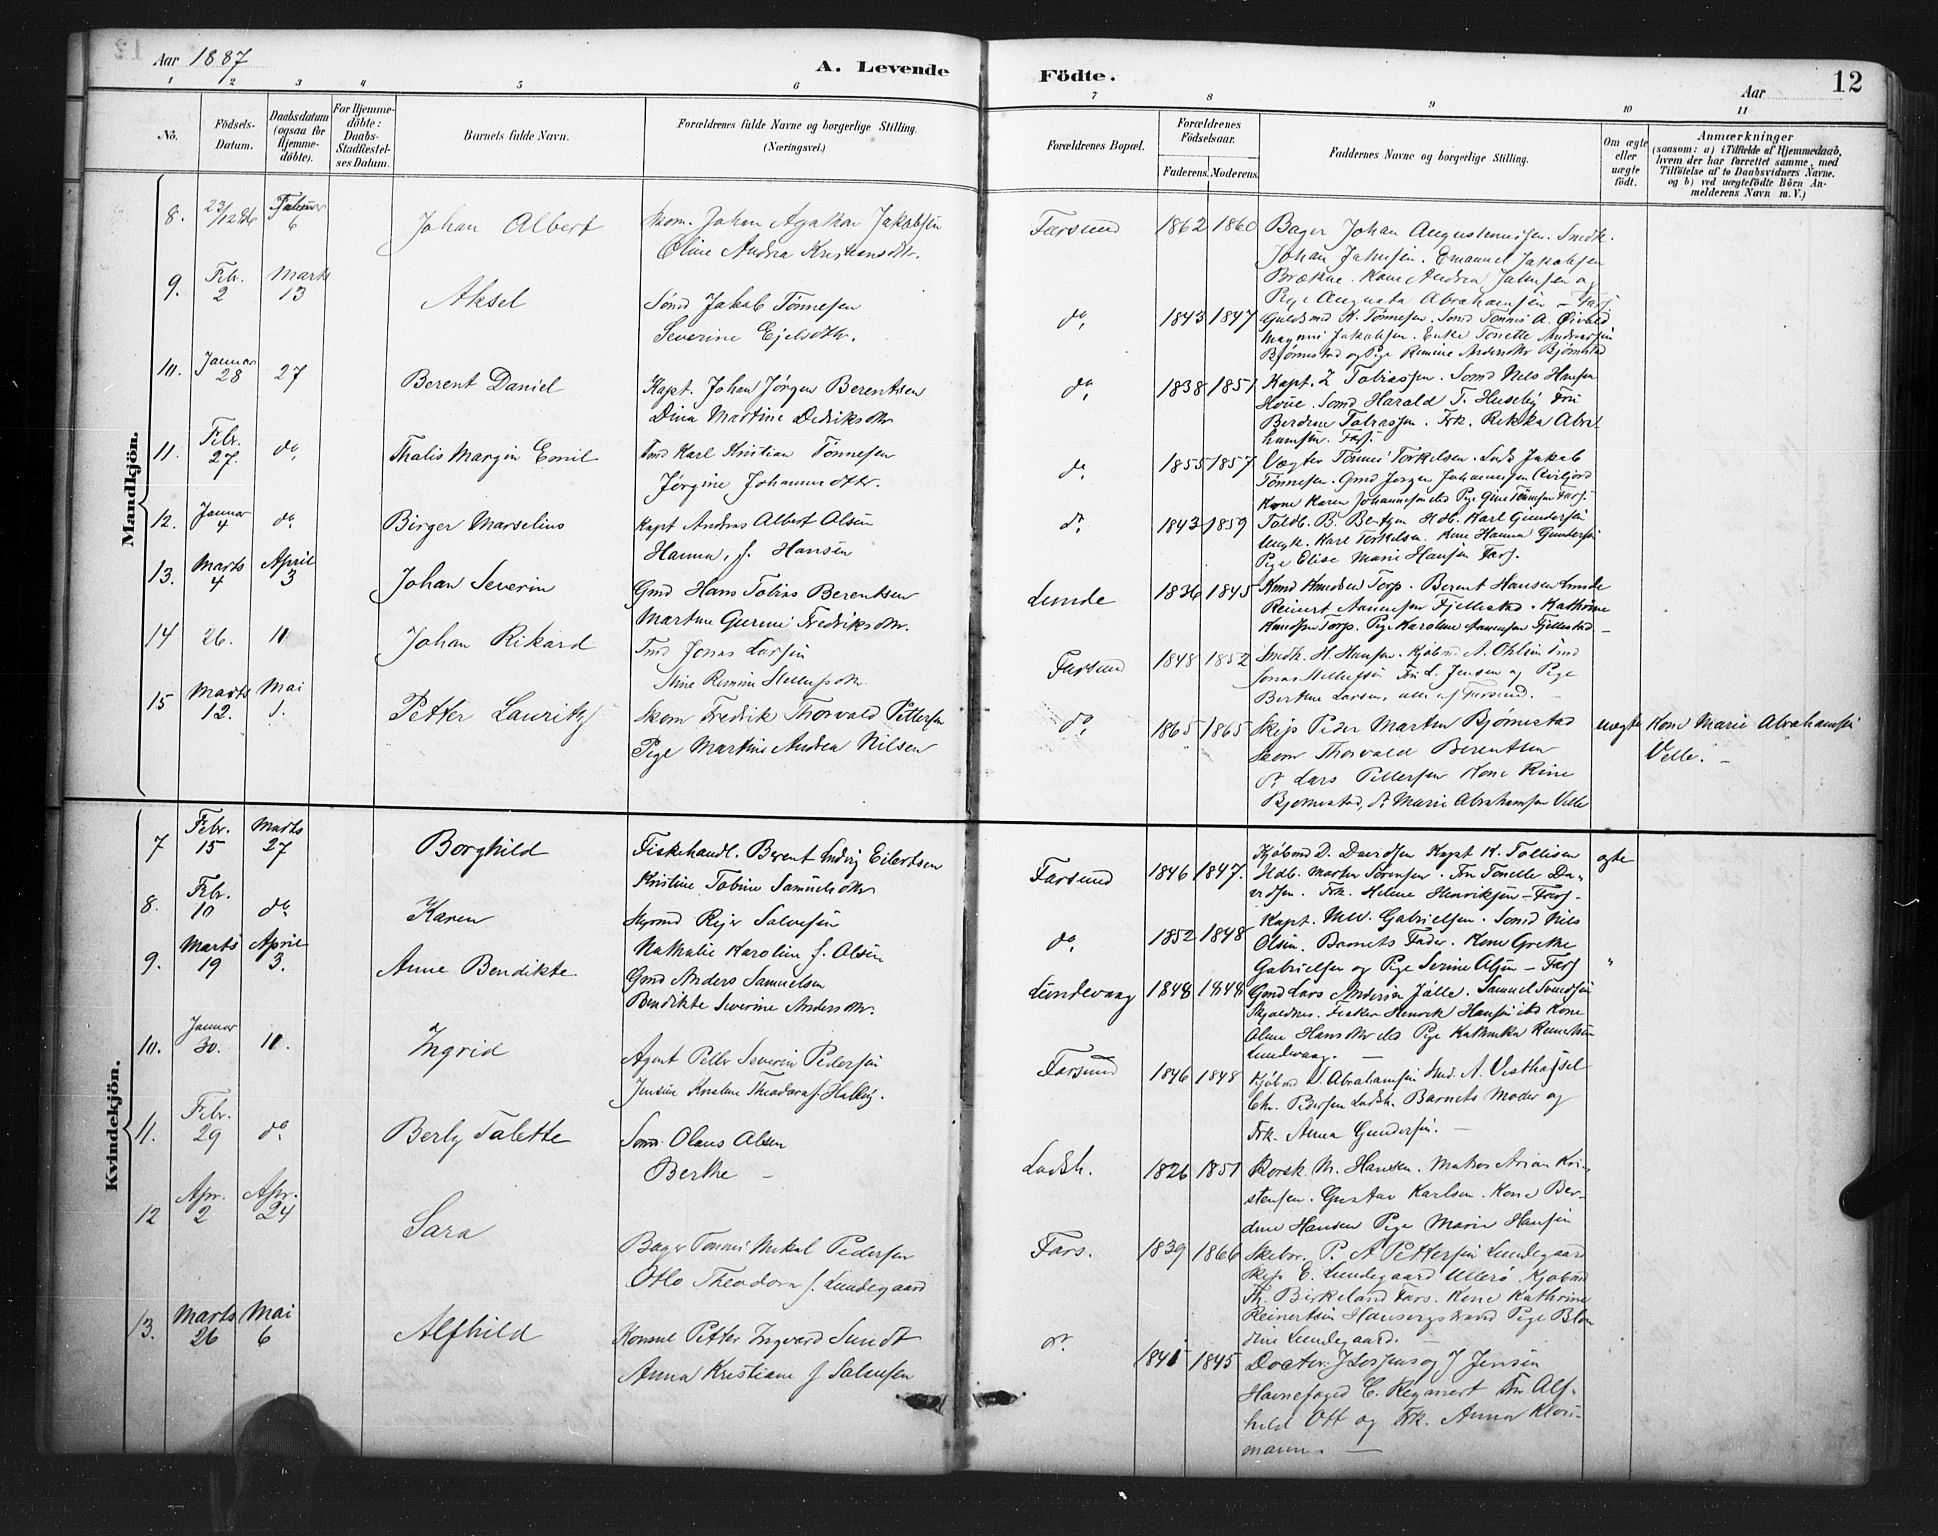 Aar 1887
A. Levende Födte.
Aar
12
1 2 3 4 5 6 7 8 9 10 11
No.
Födsels-Datum.
Daabsdatum (ogsaa for Hjemme-döbte).
For Hjemme-döbte: Daabs-Stadfæstel-ses Datum.
Barnets fulde Navn.
Forældrenes fulde Navne og borgerlige Stilling.
(Næringsvei.)
Forældrenes Bopæl.
Forældrenes Födselsaar.
Faderens. Moderens.
Faddernes Navne og borgerlige Stilling.
Om ægte eller uægte födt.
Anmærkninger
(saasom: a) i Tilfælde af Hjemmedaab,
hvem der har forrettet samme, med
Tilföielse af to Daabsvidners Navne,
og b) ved uægtefödte Börn An-
melderens Navn m. V.)
Mandkjön.
8. 23/12 86 Februar 6 Johan Albert
Johan Agathon Jakobsen
Oline Andrea Kristensdtr.
Farsund 1862 1860 Bager Johan Smedk.
Johan Emanuel Jakobsen
Kone Andrea og
Pige Augusta Abrahamsen - Fars
9. Febr. 2 Marts 13 Aksel
Sömd Jakob Tönnesen
Severine Ejelsdtr.
do, 1843 1847 Guldsmd K. Tönnesen. Sömd A.
Jakobsen. Enke Tonette Andreassen
Bjørnestad og Pige Remine Andersdtr Bjørnestad
10. Januar 28 27 Berent Daniel
Kapt. Johan Jörgen Berentsen
Dina Martine Dedriksdtr
do, 1838 1851 Kapt. Z Tobiassen. Somd Nils Hansen
Somd Harald T. Huseby Fru
Berdine Tobiassen. Frk. Rikka Abra-
hamsen. Fars.
11. Febr. 27. do, Thalis Margin Emil
Karl Kristian Tönnesen
Jörgine Johannesdtr.
do 1855 1857 Vægter Tönnes Torkelsen. Lods Jakob
Tönnesen. Gmd Jörgen Johannesen
Kone Karen Pige Gine Tönnesen Fars.
12. Januar 4 do, Birger Marselius
Kapt Andreas Albert Olsen
Hanna, f. Hansen
do, 1843 1859 Toldb. B. Bentzen Hdb. Karl Gundersen
Karl Torkelsen. Kone Hanna Gundersen
Pige Elise Marie Hansen Fars.
13. Marts 4 April 3 Johan Severin
Gmd Hans Tobias Berentsen
Martine Gurine Fredriksdtr.
Lunde 1836 1845 Knud Knudsen Torp. Berent Hansen Lunde
Reinert Aanensen Fjellestad. Kathrine
Knudsen Torp. Pige Karoline Aanensen Fjellestad -
14 26. 11 Johan Rikard
Jonas Larsen
Stine Remine
Farsund 1848 1852 Smedk. H. Hansen. Kjöbmd A. Ohlsen
Jonas Fru L. Jensen og Pige
Berthe Larsen, alle af Farsund. -
15 Marts 12. Mai 1. Petter Lauritz
Skom Fredrik Thorvald Pettersen
Pige Martine Andrea Nilsen
do, 1865 1865 Skip Peder Martin Bjørnestad
Skom Thorvald Berentsen
Lars Pettersen Kone Rine
Bjørnestad, Marie Abrahamsen Velle
uægte Kone Marie Abrahamsen
Velle. -
Kvindekjön.
7 Febr. 15 Marts 27 Borghild
Fiskehandl. Berent Ludvig Eilertsen
Kristine Tobine Samuelsdtr
Farsund 1846 1847. Kjöbmd D. Davidsen Kapt K. Tollisen
Hdb. Morten Sörensen. Fru Tonette Da-
vidsen. Frk. Helene Henriksen - Fars.
ægte
8. Febr. 10 do. Karen
Styrmd Rejer Salvesen
Nathalie Karoline f. Olsen
do, 1852 1848 Kapt. Gabrielsen. Somd Nils
Olsen. Barnets Fader. Kone Grethe
Gabrielsen og Pige Serine Olsen - Fars
"
9. Marts 19 April 3. Anne Bendikte
Gmd Anders Samuelsen
Bendikte Severine Andersdtr.
Lundevaag 1848 1848 Gmd Lars Andersen Jölle. Samuel
Fisker Henrik Hansen Kone
Hansdtr Pige Kathinka
Lundevaag. -
10. Januar 30. 11. Ingrid
Agent Petter Severin Pedersen
Jensine Kristine Theodora f.
Farsund 1846 1848 Kjöbmd Abrahamsen A. Vesthassel
Chr. Pedersen Ladsh. Barnets Moder og
Frk. Anna Gundersen. -
11. Febr. 29 do. Berly Talette
Somd. Olaus Olsen
Berthe -
Ladsh. 1826 1851 M. Hansen. Matros Arian Kri-
stensen. Gustav Karlsen. Kone Ber-
dine Hansen Pige Marie Hansen
12 Apr. 2 Apr. 24 Sara
Bager Tönnes Mikal Pedersen
Otto Theodora f. Lundegaard
Fars. 1839 1866 P. A Pettersen Lundegaard
Skip E. Lundegaard Ullerø. Kjöbmd
Th. Birkeland Fars. Kone Kathrine
Reinertsen Pige Blon
dine Lundegaard. -
13. Marts 26 Mai 6 Alfhild
Konsul Petter Ingvard Sundt
Anna Kristiane f Salvesen
do. 1841 1845 Doctor J Jensen
Havnefoged C. Reymert Fru Alf-
hild Ott og Frk. Anna
mann. -